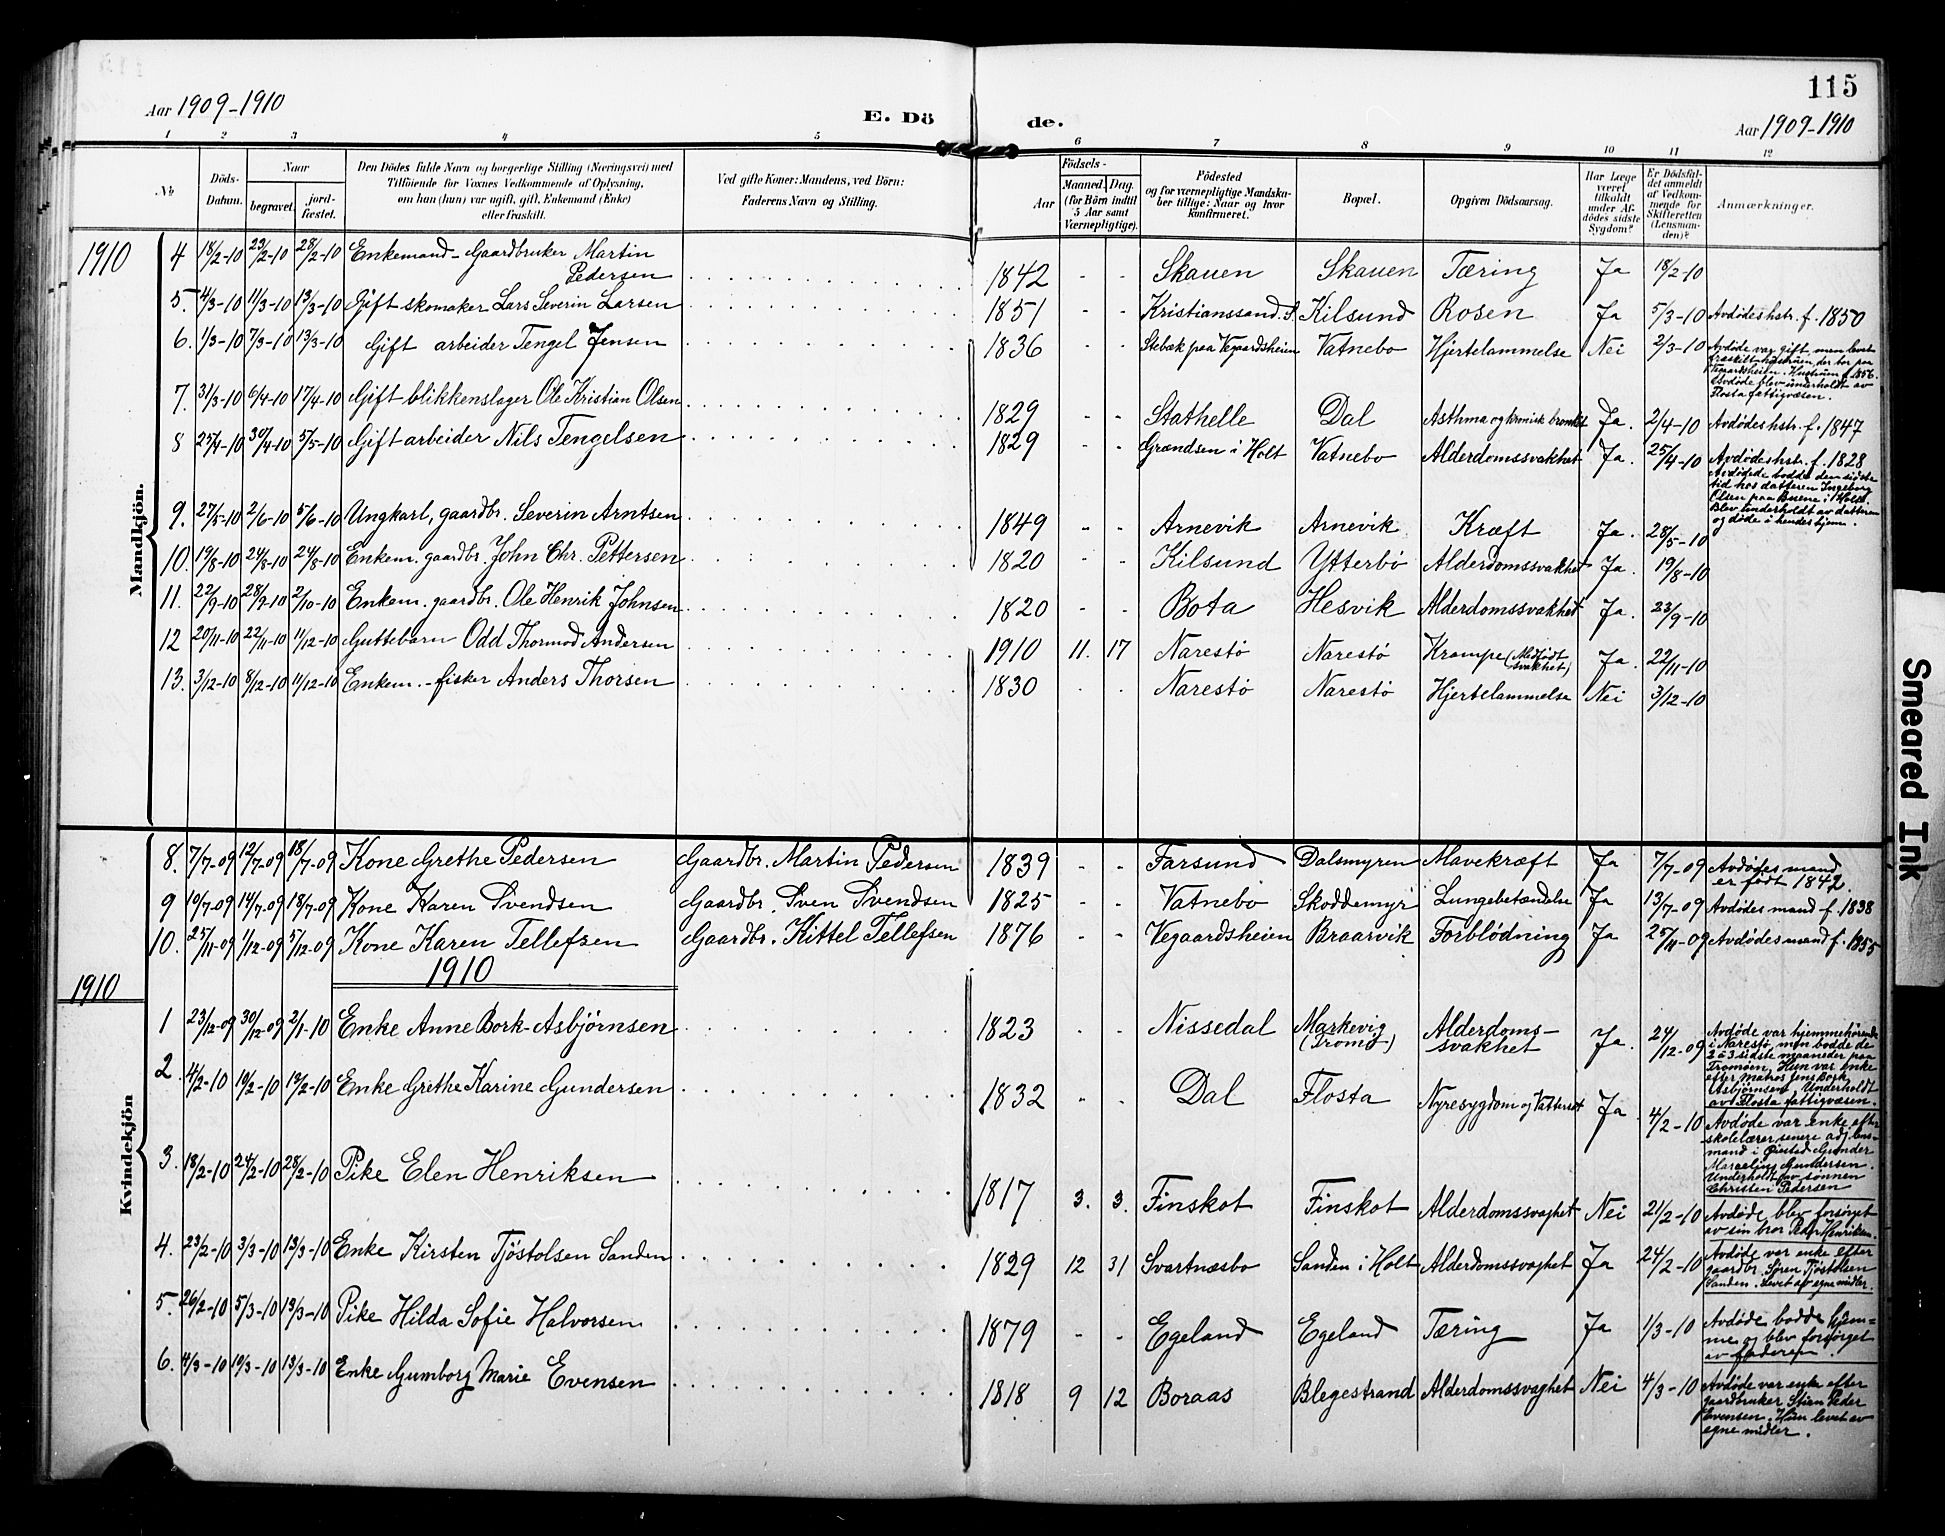 115
Aar 1909-1910
E. Dö de.
Aar 1909-1910
1 2 3 4 5 6 7 8 9 10 11 12
No
Döds-Datum.
Naar
begravet.
jord-fæstet.
Den Dödes fulde Navn og borgerlige Stilling (Næringsvei) med
Tilföiende for Voxnes Vedkommende af Oplysning,
om han (hun) var ugift, gift, Enkemand (Enke)
eller fraskilt.
Ved gifte Koner: Mandens, ved Börn:
Faderens Navn og Stilling.
Födsels-
Aar
Maaned. Dag.
(for Börn indtil
5 Aar samt
Værnepligtige).
Födested
og for værnepligtige Mandska-
ber tillige: Naar og hvor
konfirmeret.
Bopæl.
Opgiven Dödsaarsag.
Har Læge
været
tilkaldt
under Af-
dödes sidste
Sygdom?
Er Dödsfal-
det anmeldt
af Vedkom-
mende for
Skifteretten
(Lensman-
den)?
Anmærkninger.
Mandkjön.
1910
4 18/2-10 23/2-10 28/2-10 Enkemand - Gaardbruker Martin
Pedersen 1842 - - Skauen Skauen Tæring Ja 18/2-10
5. 4/3-10 11/3-10 13/3-10 Gift skomaker Lars Severin Larsen 1851 - - Kristianssand. S. Kilsund Rosen Ja 5/3-10 Avdødes hstr. f. 1850
6. 1/3-10 7/3-10 13/3-10 Gift arbeider Tengel Jensen 1836 - - Stebæk paa Vegaardsheien Vatnebo Hjertelammelse Nei 2/3-10 Avdøde var gift, men levet
fraskilt hustruen, der bor paa
Vegaardsheien. Hustruen f. 1856.
Avdøde blev underholdt av
Flosta fattigvæsen.
7. 31/3-10 6/4-10 17/4-10 Gift blikkenslager Ole Kristian Olsen 1829 - - Stathelle Dal Asthma og kronisk bronkit Ja. 2/4-10 Avdødes hstr. f. 1847
8 25/4-10 30/4-10 5/5-10 Gift arbeider Nils Tengelsen 1829 - - Grændsen i Holt Vatnebo Alderdomssvakhet Ja. 25/4-10 Avdødes hstr. f. 1828
Avdøde bodde den sidste
tid hos datteren Ingeborg
Olsen paa Buene i Holt.
Blev underholdt av datteren
og døde i hendes hjem.
9. 27/5-10 2/6-10 5/6-10 Ungkarl, gaardbr. Severin Arntsen 1849 - - Arnevik Arnevik Kræft Ja. 28/5-10
10. 19/8-10 24/8-10 24/8-10 Enkem. gaardbr. John Chr. Pettersen 1820 - - Kilsund Ytterbø Alderdomssvakhet Ja. 19/8-10
11. 22/9-10 28/9-10 2/10-10 Enkem. gaardbr. Ole Henrik Johnsen 1820 - - Bota Hesvik Alderdomssvakhet Ja. 23/9-10
12 20/11-10 22/11-10 11/12-10 Guttebarn Odd Thormod Andersen 1910 11. 17 Narestø Narestø Krampe (Medfødt svakhet) Ja. 22/11-10
13. 3/12-10 8/12-10 11/12-10 Enkem. - fisker Anders Thorsen 1830 - - Narestø Narestø Hjertelammelse Nei 3/12-10
Kvindekjön
8. 7/7-09 12/7-09 18/7-09 Kone Grethe Pedersen Gaardbr. Martin Pedersen 1839 - - Farsund Dalsmyren Mavekræft Ja 7/7-09 Avdødes mand
er født 1842.
9 10/7-09 14/7-09 18/7-09 Kone Karen Svendsen Gaardbr. Sven Svendsen 1825 - - Vatnebo Skoddemyr Lungebetændelse Ja 13/7-09 Avdødes mand f. 1838
10. 25/11-09 1/12-09 5/12-09 Kone Karen Tellefsen Gaardbr. Kittel Tellefsen 1876 - - Vegaardsheien Braarvik Forblødning Ja 25/11-09 Avdødes mand f. 1855
1910
1910
1 23/12-09 30/12-09 2/1-10 Enke Anne Bork-Asbjørnsen 1823 - - Nissedal Markevig
(Tromø) Alderdoms-
svakhet Ja. 24/12-09 Avdøde var hjemmehørende
i Narestø, men bodde de
2 à 3 sidste maaneder paa
Tromøen. Hun var enke
efter matros Jens Bork
Asbjørnsen. Underholdt
av Flosta fattigvæsen.
2. 4/2-10 10/2-10 19/2-10 Enke Grethe Karine Gundersen 1832 - - Dal Flosta Nyresygdom og Vattersot Ja. 4/2-10 Avdøde var enke efter
skolelærer senere adj. lens-
mand i Øiestad Gunder
Marcelius Gundersen.
Underholdt av sønnen
Christen Pedersen
3. 18/2-10 24/2-10 28/2-10 Pike Elen Henriksen 1817 3. 3. Finskot Finskot Alderdomssvaghet Nei 21/2-10 Avdøde blev forsørget
av sin bror Peder Henriksen.
4. 23/2-10 3/3-10 13/3-10 Enke Kirsten Tjöstolsen Sanden 1829 12 31 Svartnæsbo Sanden i Holt Alderdomssvaghet Ja 24/2-10 Avdøde var enke efter
gaardbr. Søren Tjöstolsen
Sanden. Levet av egne midler.
5. 26/2-10 5/3-10 13/3-10 Pike Hilda Sofie Halvorsen 1879 - - Egeland Egeland Tæring Ja 1/3-10 Avdøde bodde hjem-
me og blev forsørget
av faderen.
6. 4/3-10 10/3-10 13/3-10 Enke Gumborg Marie Evensen 1818 9 12 Boraas Blegestrand Alderdomssvaghet Nei 4/3-10 Avdøde var enke efter
gaardbruker Stian Peder
Evensen. Hun levet av
egne midler.
Smeared Ink